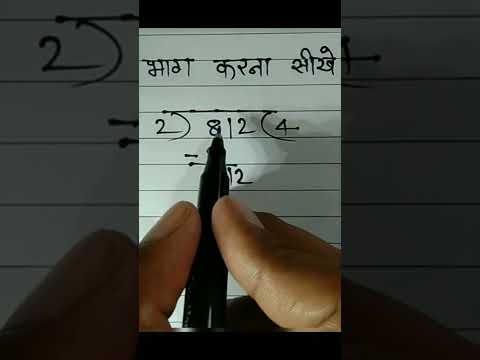 भाग करना सीखे
2) 812 (4
12